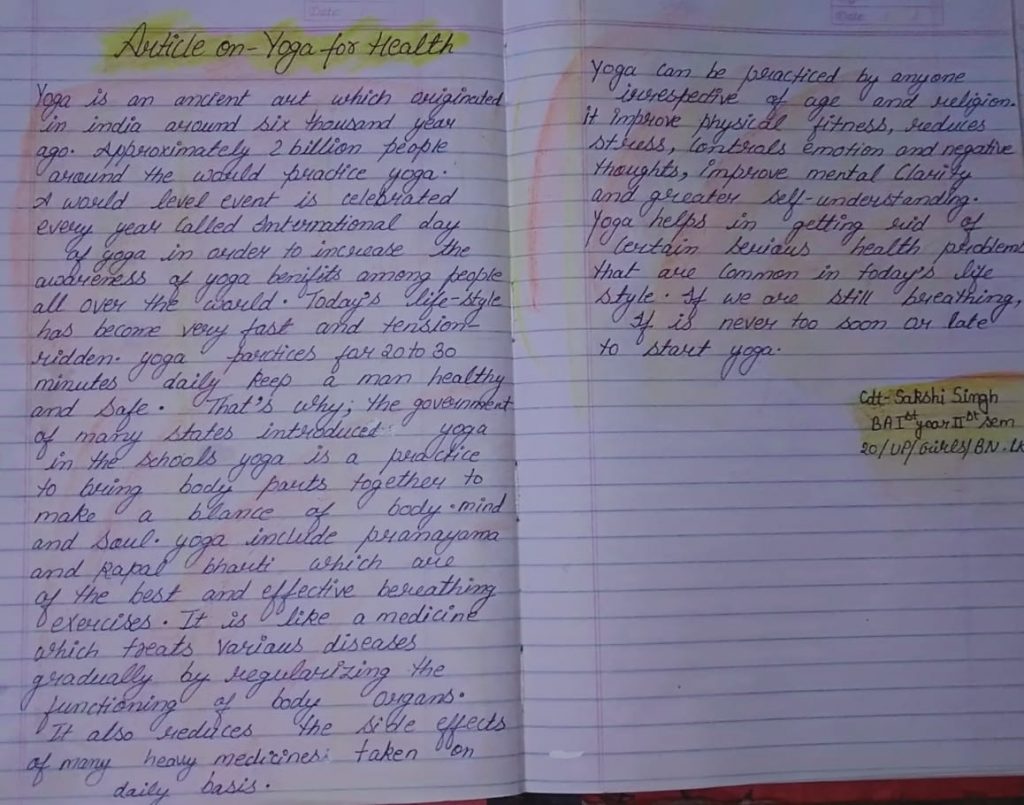 Date
Date
Article on-Yoga for Health
Yoga is an ancient art which originated
in india around six thousand year
ago. Approximately 2 billion people
around the world practice yoga.
A world level event is celebrated
every year called International day
of yoga in order to increase the
awareness of yoga benifits among people
all over the world. Today's life-style
has become very fast and tension-
ridden. yoga parctices for 20 to 30
minutes daily keep a man healthy
and safe. That's why; the government
of many states introduced yoga
in the schools yoga is a practice
to bring body parts together to
make a blance of body-mind
and soul. yoga include pranayama
and kapal bharti which are
of the best and effective bereathing
exercises. It is like a medicine
which treats various diseases
gradually by regularizing the
functioning of body organs.
It also reduces the side effects
of many heavy medicines taken on
daily basis.
Yoga can be practiced by anyone
irrespective of age and religion.
it improve physical fitness, reduces
stress, controls emotion and negative
thoughts, improve mental clarity
and greater self-understanding.
Yoga helps in getting rid of
certain serious health problem
that are common in today's life
style. If we are still breathing,
If is never too soon or late
to start yoga.
Cdt- Sakshi Singh
BA Ist year IIst sem
20/UP/Girls/BN.